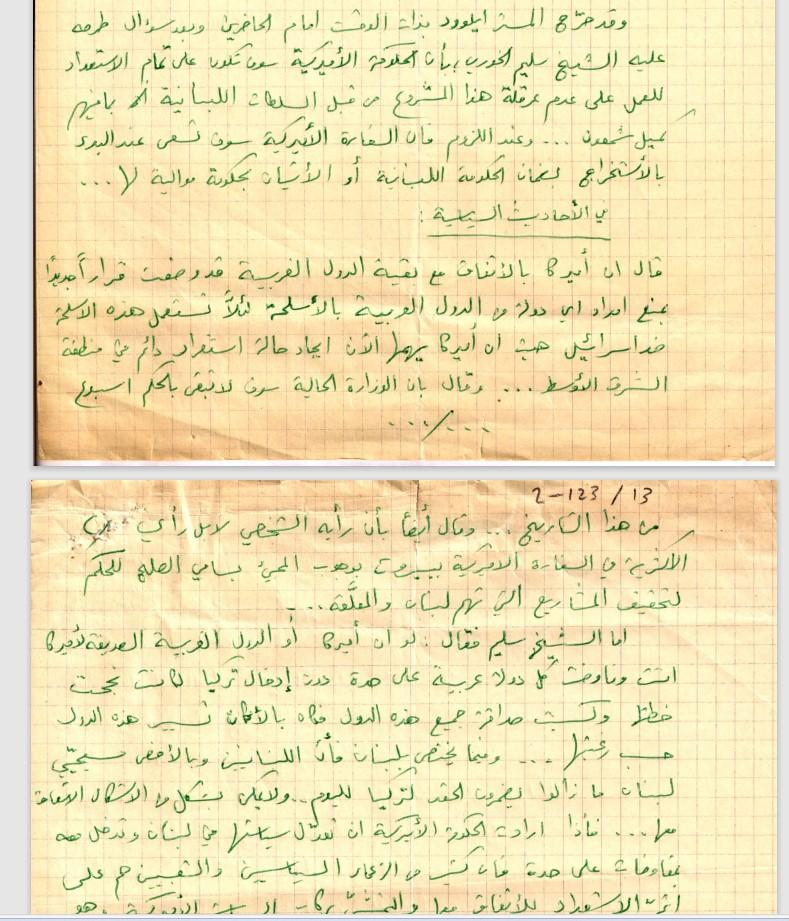 وقد صرّح المستر ايلوود بذات الوقت امام الحاضرين وبعد سؤال طرحه
عليه الشيخ سليم الخوري، بأن الحكومة الأميركية سوف تكون على تمام الاستعداد
للعمل على عدم عرقلة هذا المشروع من قبل السلطات اللبنانية بما فيهم
كميل شمعون ... وعند اللزوم فان السفارة الأميركية سوف تسعى عند البدء
بالأستخراج لضمان الحكومة اللبنانية أو الأتيان بحكومة موالية لها ...
في الأحاديث السياسية :
قال ان أميركا بالأتفاق مع بقية الدول الغربية قد وضعت قراراً جديداً
بمنع امداد اي دولة من الدول العربية بالأسلحة لئلاَّ تستعمل هذه الاسلحة
ضد اسرائيل حيث ان أميركا يهمها الآن ايجاد حالة استقرار دائم في منطقة
الشرق الأوسط ... وقال بان الوزارة الحالية سوف لا تبقى بالحكم اسبوع
.../...
2-123/13
من هذا التاريخ ... وقال أيضاً بأن رأيه الشخصي لا بل رأي
الأكثرية في السفارة الاميركية ببيروت بوجوب المجيء بسامي الصلح للحكم
لتحقيق المشاريع التي تهم لبنان والمعلَّقة ...
اما الشيخ سليم فقال : لو ان أميركا أو الدول الغربية الصديقة لأميركا
اتت وفاوضت كل دولة عربية على حدة دون إدخال تركيا لكانت نجحت
خطتها وكسبت صداقة جميع هذه الدول فكان بالأمكان تسيير هذه الدول
حسب رغبتها ... وفيما يختص بلبنان فأن اللبنانيين وبالأخص مسيحيّي
لبنان ما زالوا يضمرون الحقد لتركيا لليوم .. ولا يمكن بشكل من الاشكال الاتفاق
معها ... فأذا ارادت الحكومة الأميركية ان تعدّل سياستها في لبنان وتدخل معه
بمفاوضات على حدة فان كثير من الزعماء السياسيين والشعبيين هم على
اتمّ الاستعداد للأتفاق معها